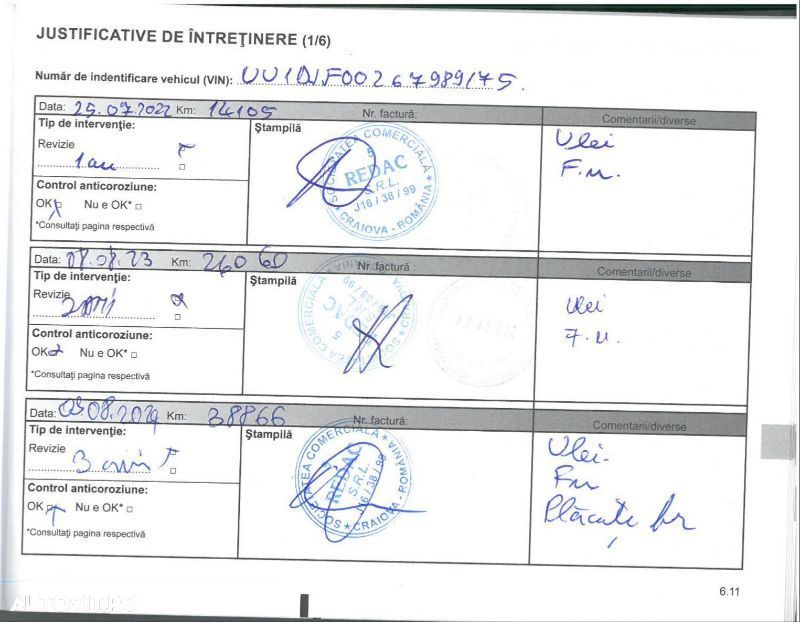 JUSTIFICATIVE DE ÎNTREŢINERE (1/6)
Număr de indentificare vehicul (VIN): UU1DJF00267989175.
Data: 25.07.2022 Km: 14105 Nr. factură: Comentarii/diverse
Tip de intervenţie:
Revizie
1 an
Control anticoroziune:
OK Nu e OK*
*Consultaţi pagina respectivă
Ştampilă
SOCIETATEA COMERCIALĂ
5
REDAC
S.R.L.
J16 / 38 / 99
CRAIOVA - ROMÂNIA
Ulei
F.u.
Data: 08.08.23 Km: 26060 Nr. factură : Comentarii/diverse
Tip de intervenţie:
Revizie
2 ani
Control anticoroziune:
OK Nu e OK*
*Consultaţi pagina respectivă
Ştampilă
SOCIETATEA COMERCIALĂ
5
REDAC
S.R.L.
J16 / 38 / 99
CRAIOVA - ROMÂNIA
Ulei
F.u.
Data: 09.08.2024 Km: 38866 Nr. factură: Comentarii/diverse
Tip de intervenţie:
Revizie
3 ani
Control anticoroziune:
OK Nu e OK*
*Consultaţi pagina respectivă
Ştampilă
SOCIETATEA COMERCIALĂ
REDAC
S.R.L.
J16 / 38 / 99
CRAIOVA - ROMÂNIA
Ulei.
Fu
Plăcuțe fr
6.11
AUTOVIT.RO